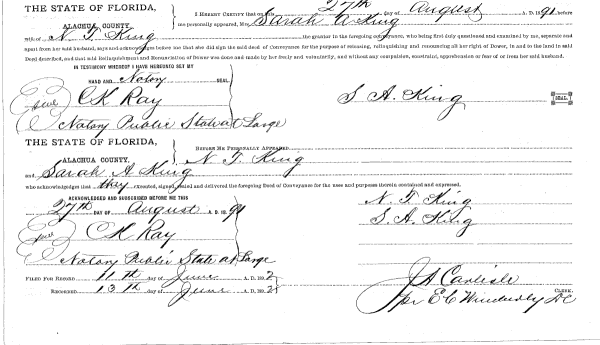 THE STATE OF FLORIDA,
ALACHUA COUNTY. I HEREBY CERTIFY that on this 27th day of August A. D. 1891 before
me personally appeared, Mrs Sarah A King
wife of N. T. King the grantor in the foregoing conveyance, who being first duly questioned and examined by me, separate and
apart from her said husband, says and acknowledges before me that she did sign the said deed of Conveyance for the purpose of releasing, relinquishing and renouncing all her right of Dower, in and to the land in said
Deed described, and that said Relinquishment and Renunciation of Dower was done and made by her freely and voluntarily, and without any compulsion, constraint, apprehension or fear of or from her said husband.
IN TESTIMONY WHEREOF I HAVE HEREUNTO SET MY
HAND AND Notary
Seal CK Ray S. A. King SEAL
Notary Public State at Large
THE STATE OF FLORIDA,
ALACHUA COUNTY, BEFORE ME PERSONALLY APPEARED N. T. King
and Sarah A King
who acknowledges that they executed, signed, sealed and delivered the foregoing Deed of Conveyance for the uses and purposes therein contained and expressed.
ACKNOWLEDGED AND SUBSCRIBED BEFORE ME THIS N. T. King
27th DAY OF August A. D. 1891 S. A. King
Seal CK Ray
Notary Public State at Large
FILED FOR RECORD 11th day of June A. D. 1892 J A Carlisle
RECORDED 13th day of June A. D. 1892 CLERK.
pr E C Wimberly DC